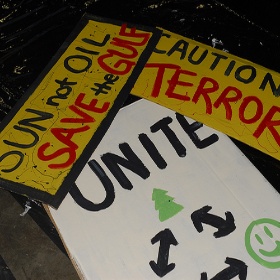 SUN not OIL
SAVE the GULF
CAUTION
TERROR
UNITE